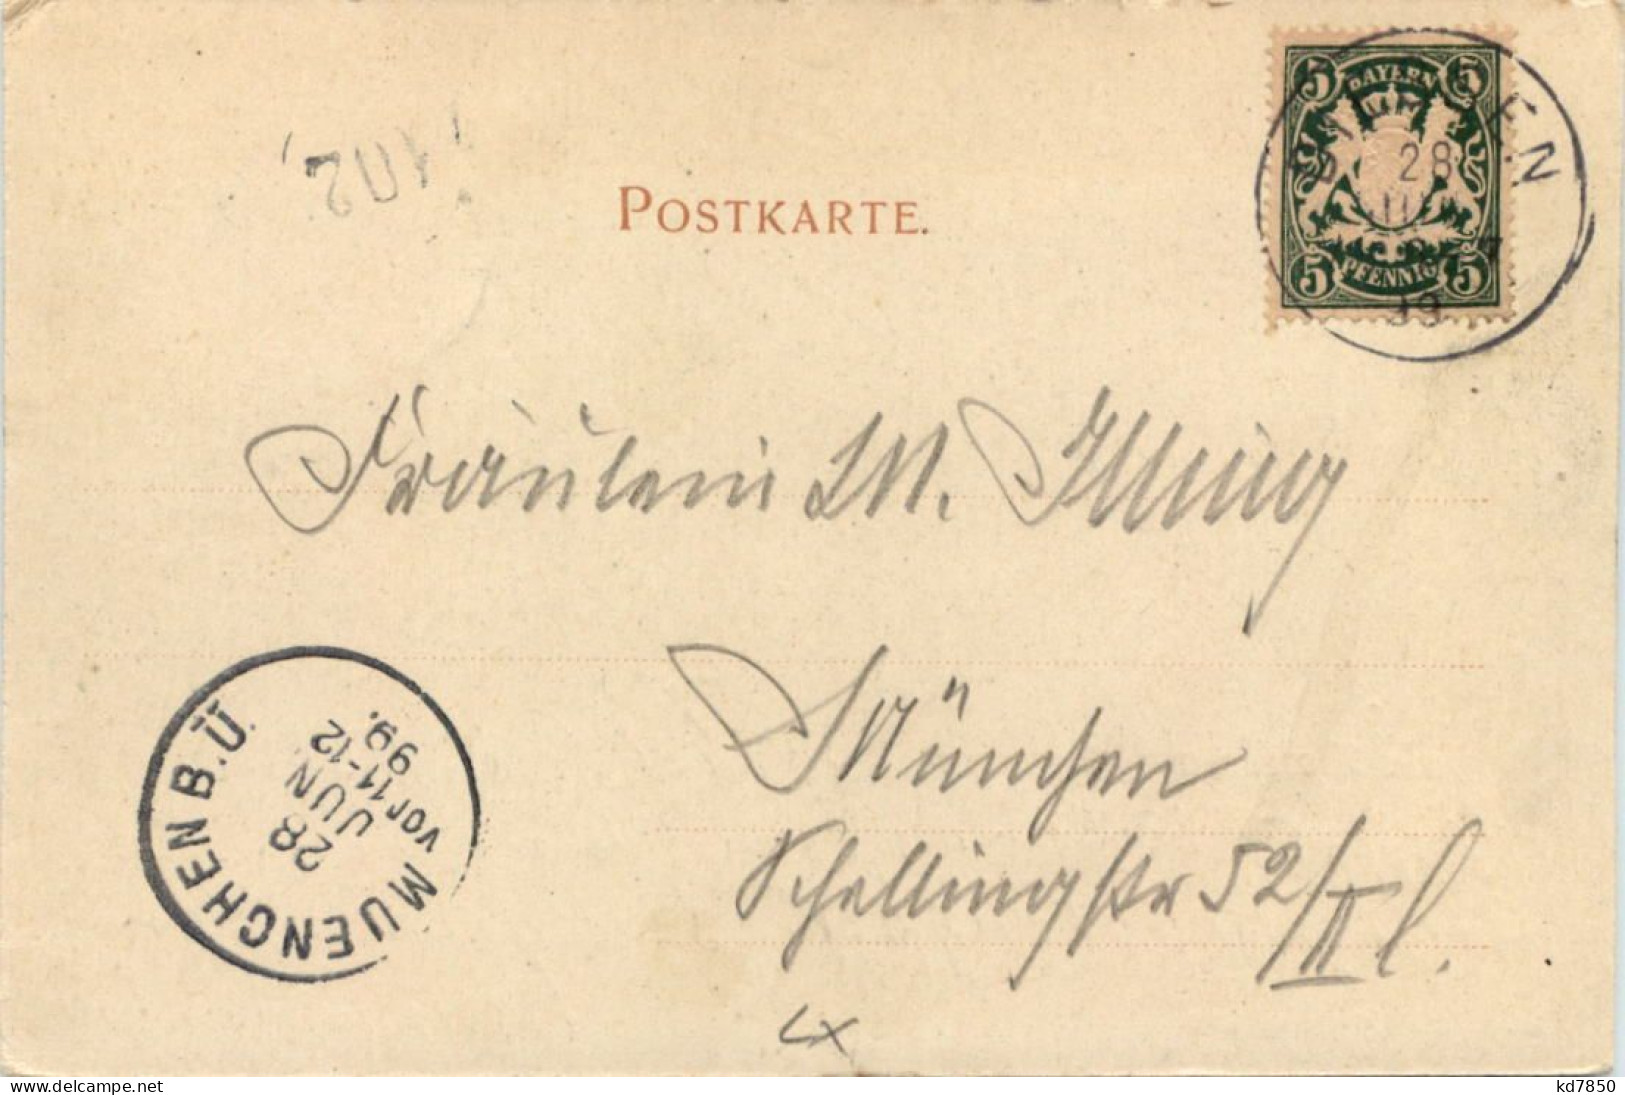 5 BAYERN 5
5 PFENNIG 5
28
99
102
POSTKARTE.
Fräulein M. Illing
München
Schellingstr 52/II l.
MUENCHEN B.Ü.
28
JUN
Vor 11-12
99.
www.delcampe.net
kd7850